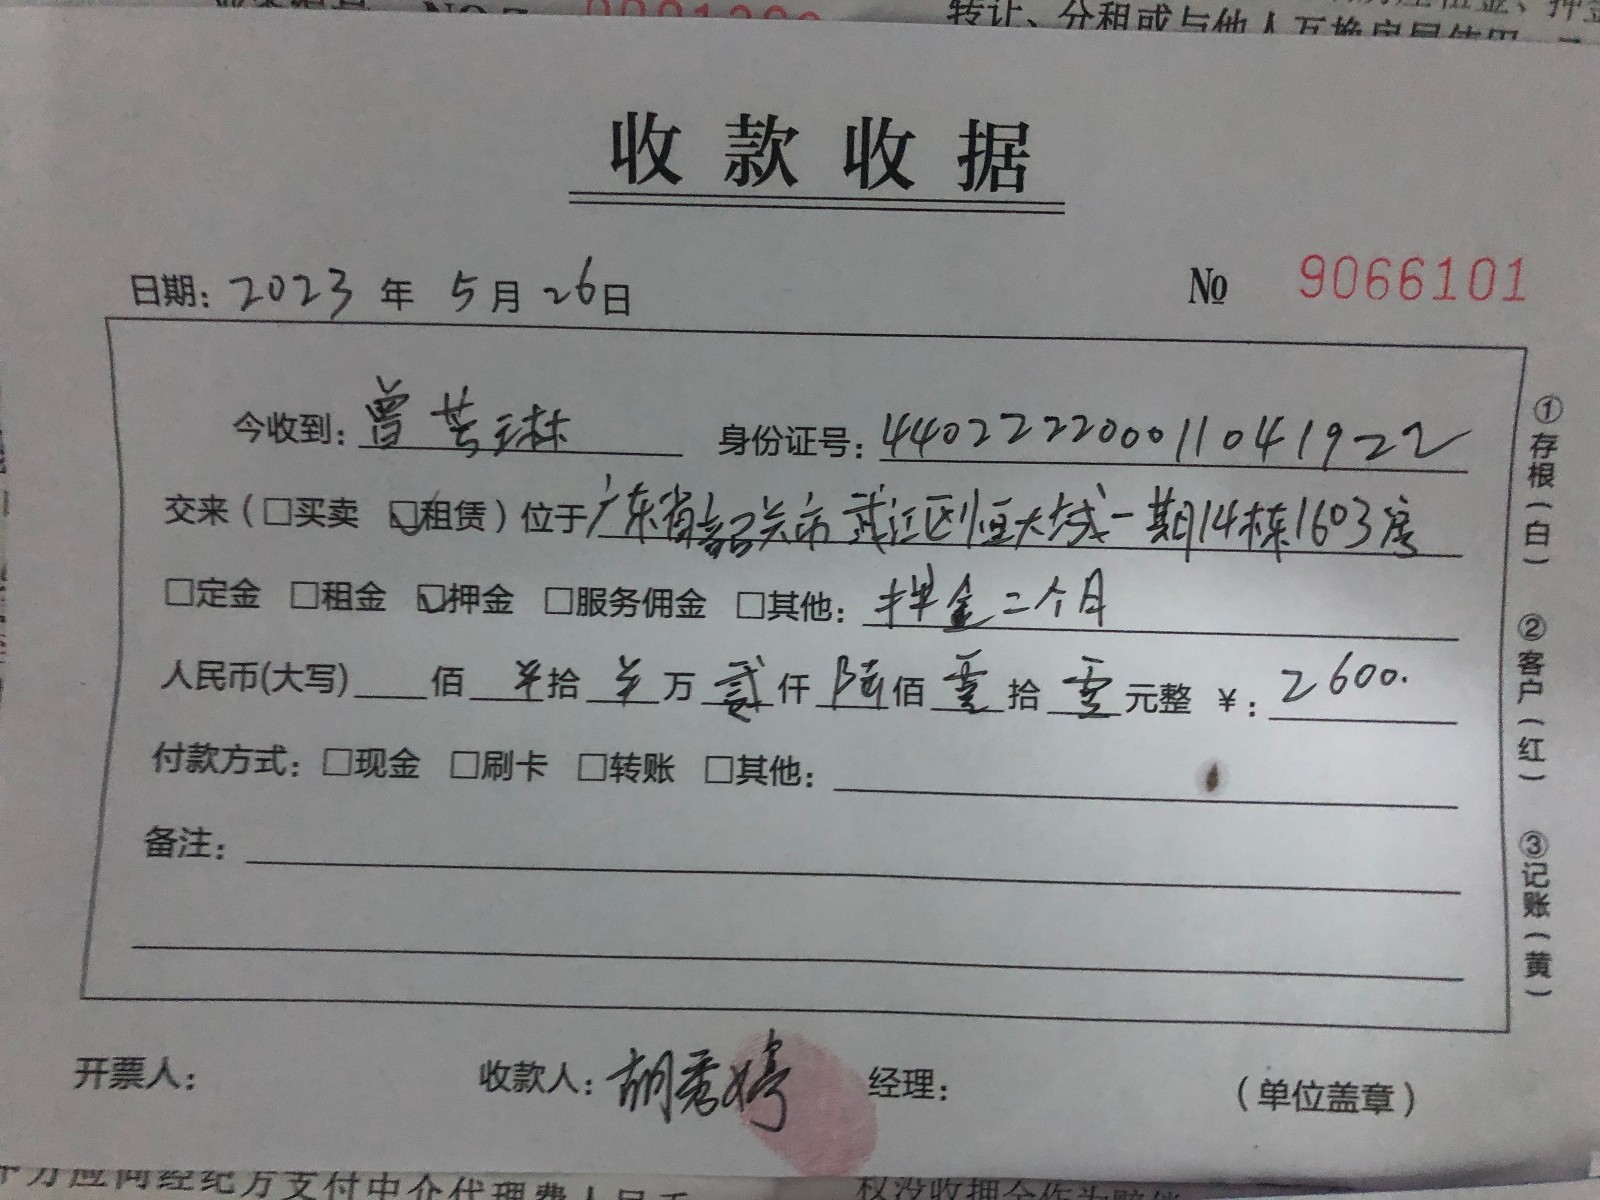 转让、分租或与他人互换房屋使用
收款收据
日期: 2023 年 5 月 26 日
№ 9066101
今收到: 曾芸琳 身份证号: 440222200011041922
交来(□买卖 ☑租赁)位于广东省韶关市武江区恒大城一期14栋1603房
□定金 □租金 ☑押金 □服务佣金 □其他: 押金二个月
人民币(大写) 佰 ¥拾 ¥万 贰仟 陆佰 零拾 零元整 ¥: 2600.
付款方式: □现金 □刷卡 □转账 □其他:
备注:
①存根(白) ②客户(红) ③记账(黄)
开票人: 收款人: 胡秀婷 经理: (单位盖章)
方应向经纪方支付中介代理费人民币
权没收押金作为赔偿